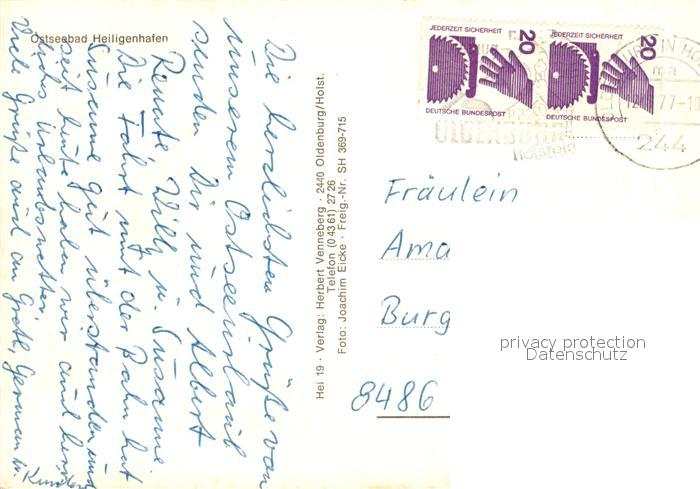 Ostseebad Heiligenhafen
Die herzlichsten Grüße von
unserem Ostseeurlaub
senden Dir und Albert
Renate, Willi u. Susanne
Die Fahrt mit der Bahn hat
Susanne gut überstanden und
seit heute haben wir auch hier
Urlaubswetter.
Viele Grüße auch an Gretl, German u.
Kinder
Hei 19 · Verlag: Herbert Venneberg · 2440 Oldenburg/Holst.
Telefon (0 43 61) 27 26
Foto: Joachim Eicke · Freig.-Nr. SH 369-715
JEDERZEIT SICHERHEIT
20
DEUTSCHE BUNDESPOST
JEDERZEIT SICHERHEIT
20
DEUTSCHE BUNDESPOST
OLDENBURG
Holstein
77-1
244
Fräulein
Ama
Burg
8486
privacy protection
Datenschutz